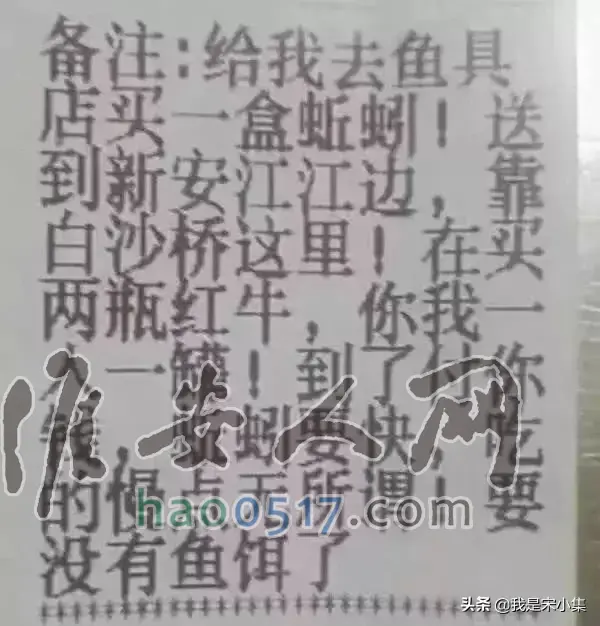 备注:给我去鱼具
店买一盒蚯蚓!送
到新安江江边,靠
白沙桥这里!在买
两瓶红牛,你我一
人一罐!到了付你
钱,蚯蚓要快,吃
的慢点无所谓!要
没有鱼饵了
淮安人网
hao0517.com
头条 @我是宋小集